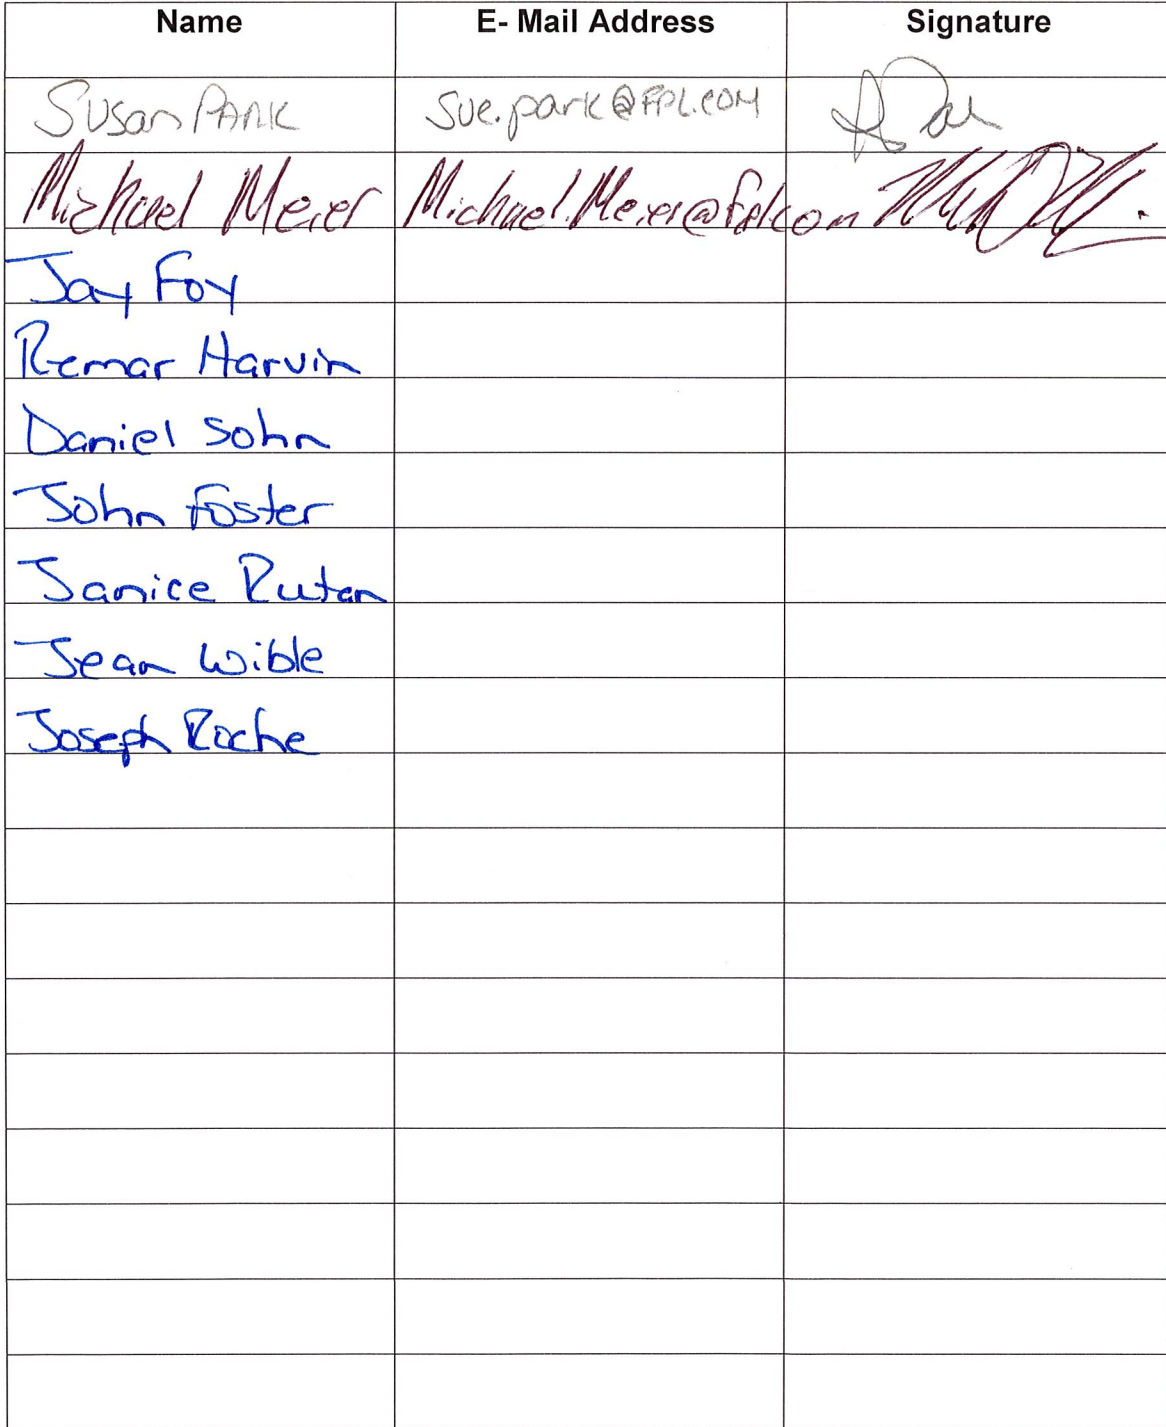 Name E- Mail Address Signature
Susan PARK Sue.park@FPL.COM
Michael Meier Michael.Meier@fpl.com
Jay Foy
Remar Harvin
Daniel Sohn
John Foster
Janice Rutan
Jean Wible
Joseph Roche